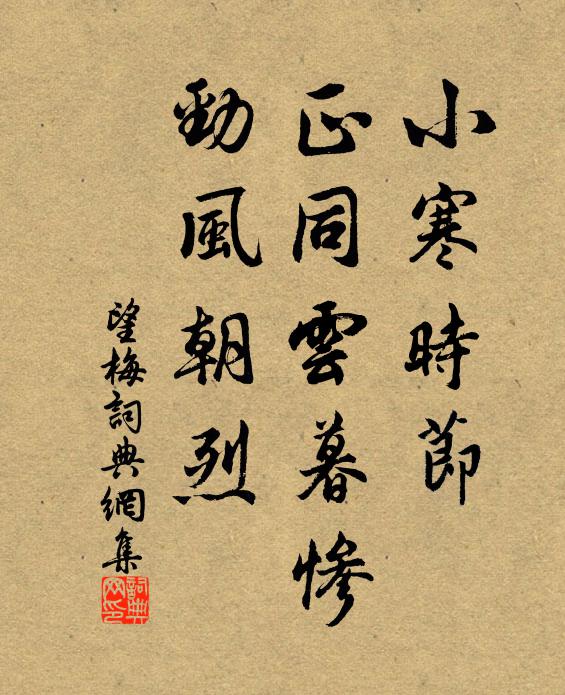 小寒時節
正同雲暮慘
勁風朝烈
望梅詞典網集
詞典
网印